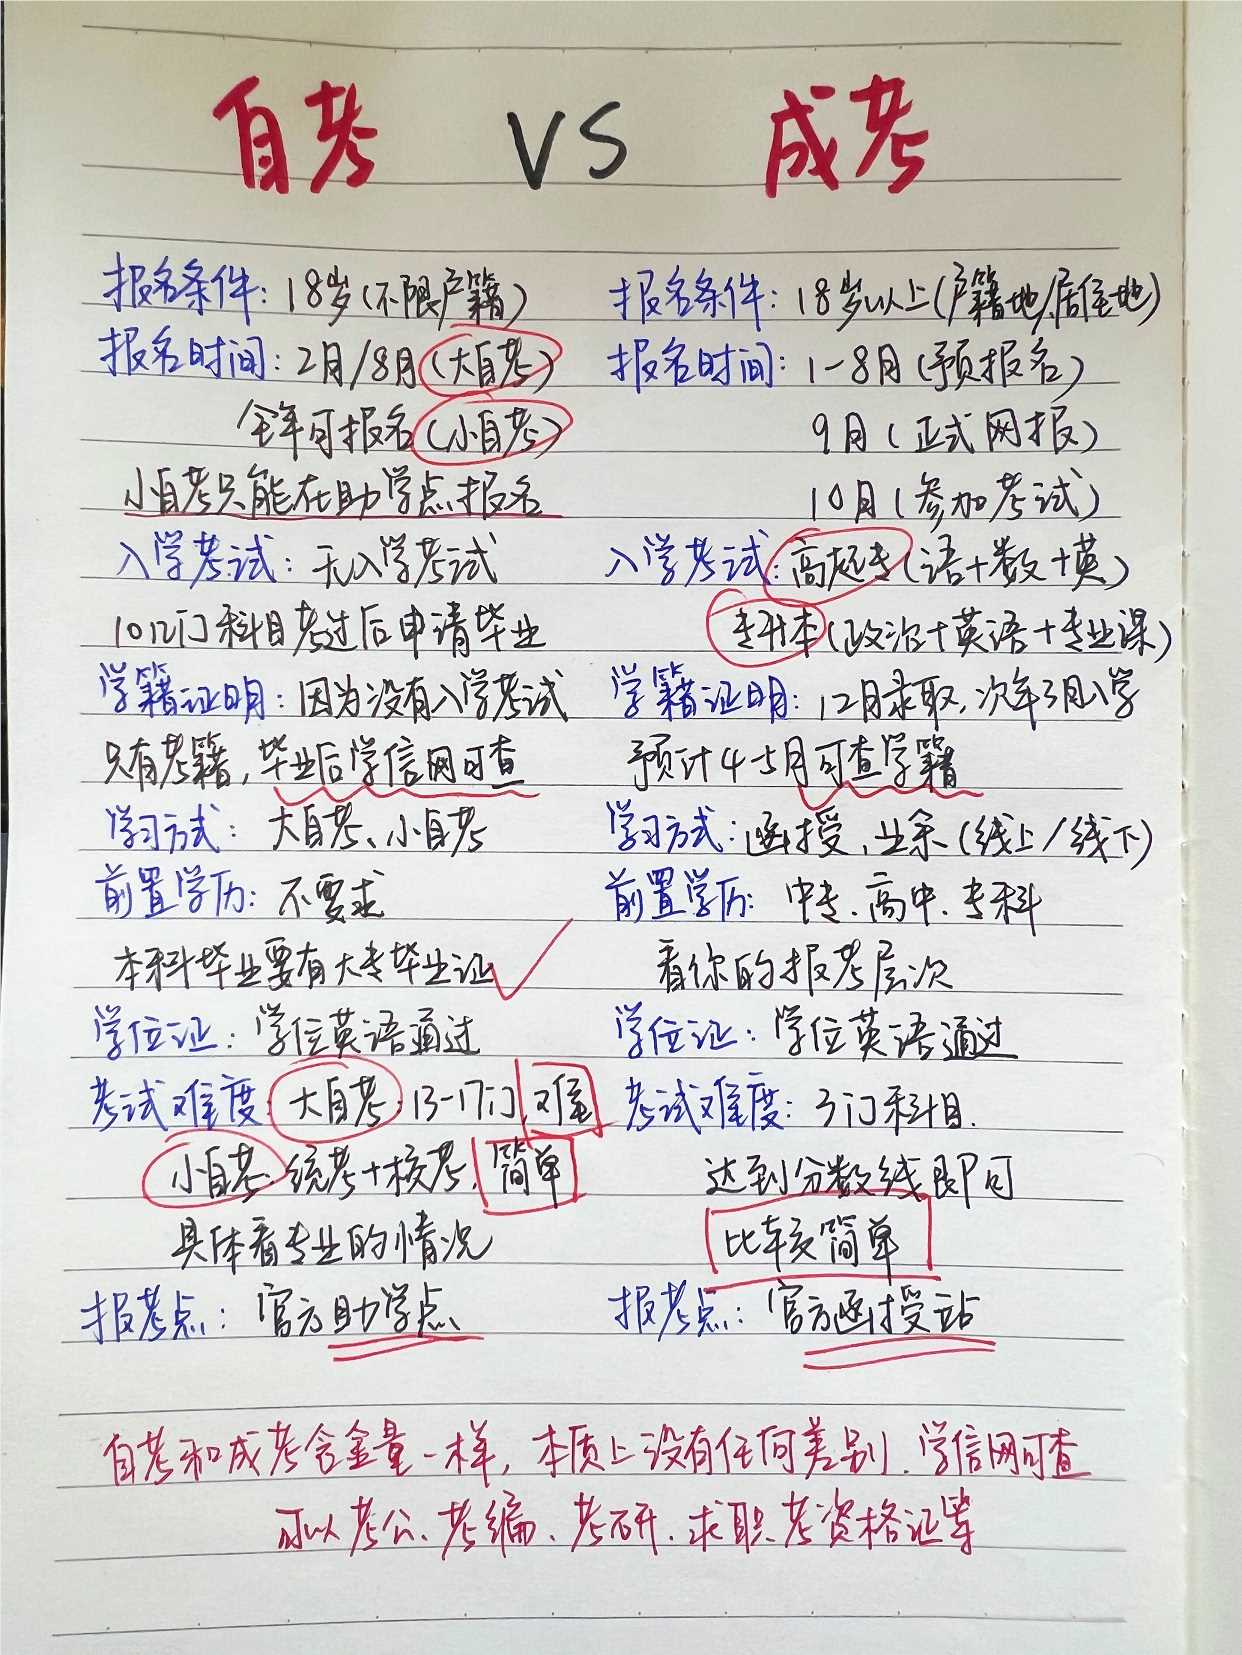 自考 VS 成考
报名条件：18岁（不限户籍） 报名条件：18岁以上（户籍地/居住地）
报名时间：2月/8月（大自考） 报名时间：1-8月（预报名）
全年可报名（小自考） 9月（正式网报）
小自考只能在助学点报名 10月（参加考试）
入学考试：无入学考试 入学考试：高起专（语+数+英）
10几门科目考过后申请毕业 专升本（政治+英语+专业课）
学籍证明：因为没有入学考试 学籍证明：12月录取，次年3月入学
只有考籍，毕业后学信网可查 预计4-5月可查学籍
学习方式：大自考、小自考 学习方式：函授、业余（线上/线下）
前置学历：不要求 前置学历：中专、高中、专科
本科毕业要有大专毕业证 看你的报考层次
学位证：学位英语通过 学位证：学位英语通过
考试难度：大自考：13-17门，难 考试难度：3门科目.
小自考：统考+校考，简单 达到分数线即可
具体看专业的情况 比较简单
报考点：官方助学点 报考点：官方函授站
自考和成考含金量一样，本质上没有任何差别，学信网可查
可以考公、考编、考研、求职、考资格证等